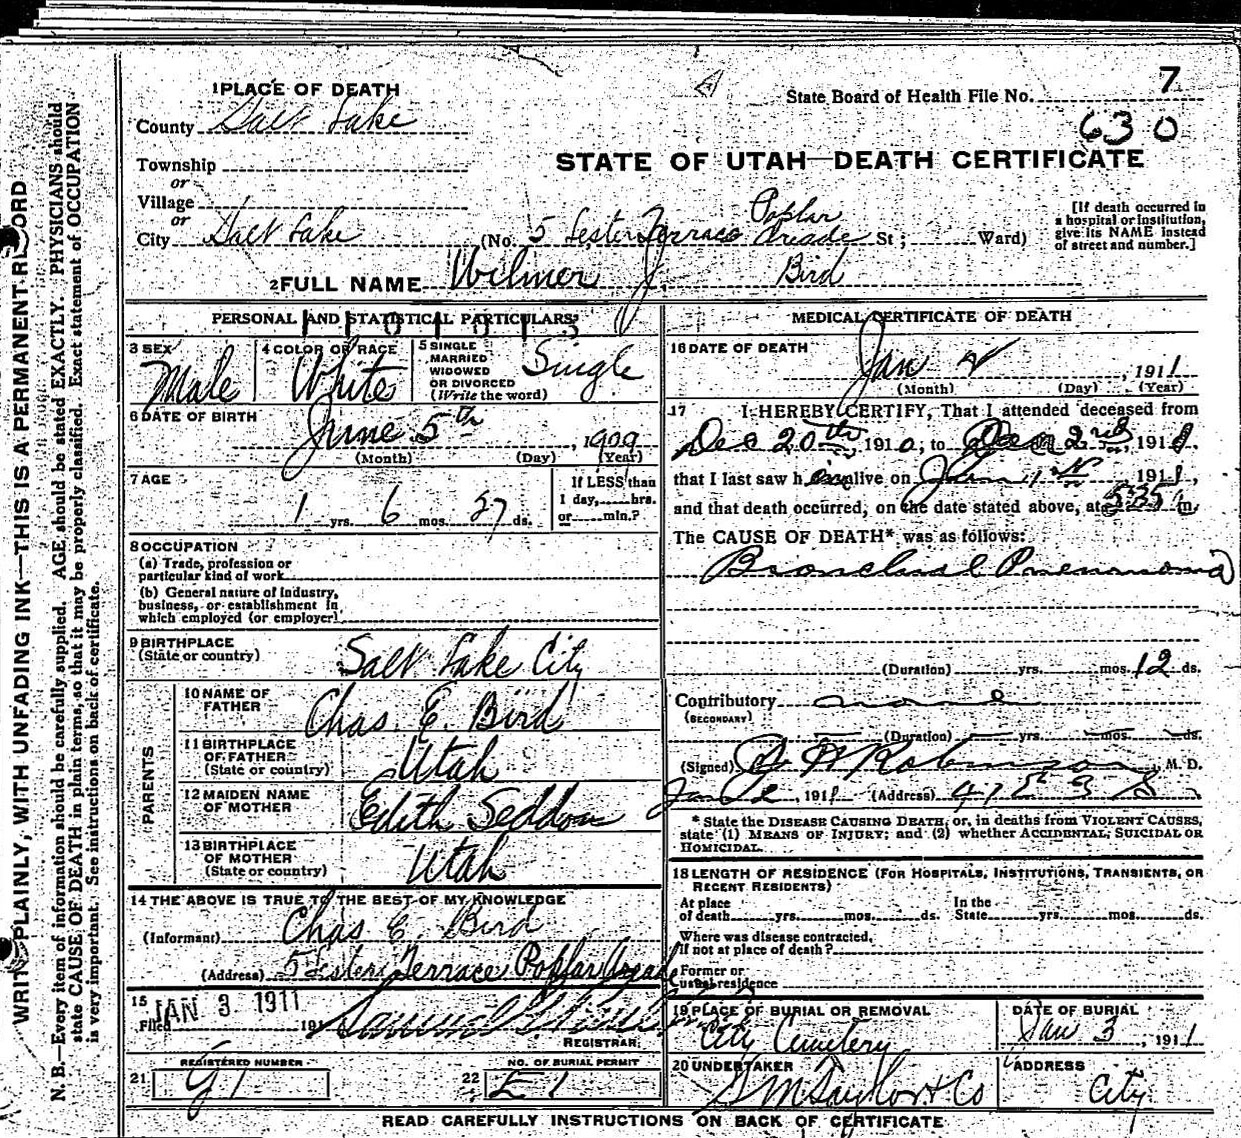 1 PLACE OF DEATH
State Board of Health File No. 7
County Salt Lake
630
STATE OF UTAH—DEATH CERTIFICATE
Township
or
Village
or
City Salt Lake (No. 5 Lester Terrace Poplar St; Ward)
[If death occurred in a hospital or institution, give its NAME instead of street and number.]
2 FULL NAME Wilmer J. Bird
PERSONAL AND STATISTICAL PARTICULARS
3 SEX Male
4 COLOR OR RACE White
5 SINGLE MARRIED WIDOWED OR DIVORCED (Write the word) Single
6 DATE OF BIRTH
June 5th, 1909
(Month) (Day) (Year)
7 AGE
1 yrs. 6 mos. 27 ds.
If LESS than 1 day, hrs. or min.?
8 OCCUPATION
(a) Trade, profession or particular kind of work
(b) General nature of industry, business, or establishment in which employed (or employer)
9 BIRTHPLACE (State or country) Salt Lake City
PARENTS
10 NAME OF FATHER Chas. E. Bird
11 BIRTHPLACE OF FATHER (State or country) Utah
12 MAIDEN NAME OF MOTHER Edith Seddon
13 BIRTHPLACE OF MOTHER (State or country) Utah
14 THE ABOVE IS TRUE TO THE BEST OF MY KNOWLEDGE
(Informant) Chas E. Bird
(Address) 5 Lester Terrace Poplar
15 JAN 3 1911
Filed 191 Samuel
REGISTRAR
REGISTERED NUMBER
21
NO. OF BURIAL PERMIT
22 E 1
MEDICAL CERTIFICATE OF DEATH
16 DATE OF DEATH
Jan, 1911
(Month) (Day) (Year)
17 I HEREBY CERTIFY, That I attended deceased from
Dec 20th 1910, to Jan 2nd, 1911
that I last saw him alive on Jan, 1911,
and that death occurred, on the date stated above, at 5:35 m.
The CAUSE OF DEATH* was as follows:
Bronchial Pneumonia
(Duration) yrs. mos. 12 ds.
Contributory none
(SECONDARY)
(Duration) yrs. mos. ds.
(Signed) Robinson, M. D.
Jan 2, 1911 (Address) 47 E 3 S
* State the DISEASE CAUSING DEATH, or, in deaths from VIOLENT CAUSES,
state (1) MEANS OF INJURY; and (2) whether ACCIDENTAL, SUICIDAL OR
HOMICIDAL.
18 LENGTH OF RESIDENCE (FOR HOSPITALS, INSTITUTIONS, TRANSIENTS, OR
RECENT RESIDENTS)
At place of death yrs. mos. ds. In the State yrs. mos. ds.
Where was disease contracted,
if not at place of death?
Former or
usual residence
19 PLACE OF BURIAL OR REMOVAL
City Cemetery
DATE OF BURIAL
Jan 3, 1911
20 UNDERTAKER
S M Taylor & Co
ADDRESS
City
READ CAREFULLY INSTRUCTIONS ON BACK OF CERTIFICATE
WRITE PLAINLY, WITH UNFADING INK—THIS IS A PERMANENT RECORD
N. B.—Every item of information should be carefully supplied. AGE should be stated EXACTLY. PHYSICIANS should
state CAUSE OF DEATH in plain terms, so that it may be properly classified. Exact statement of OCCUPATION
is very important. See instructions on back of certificate.